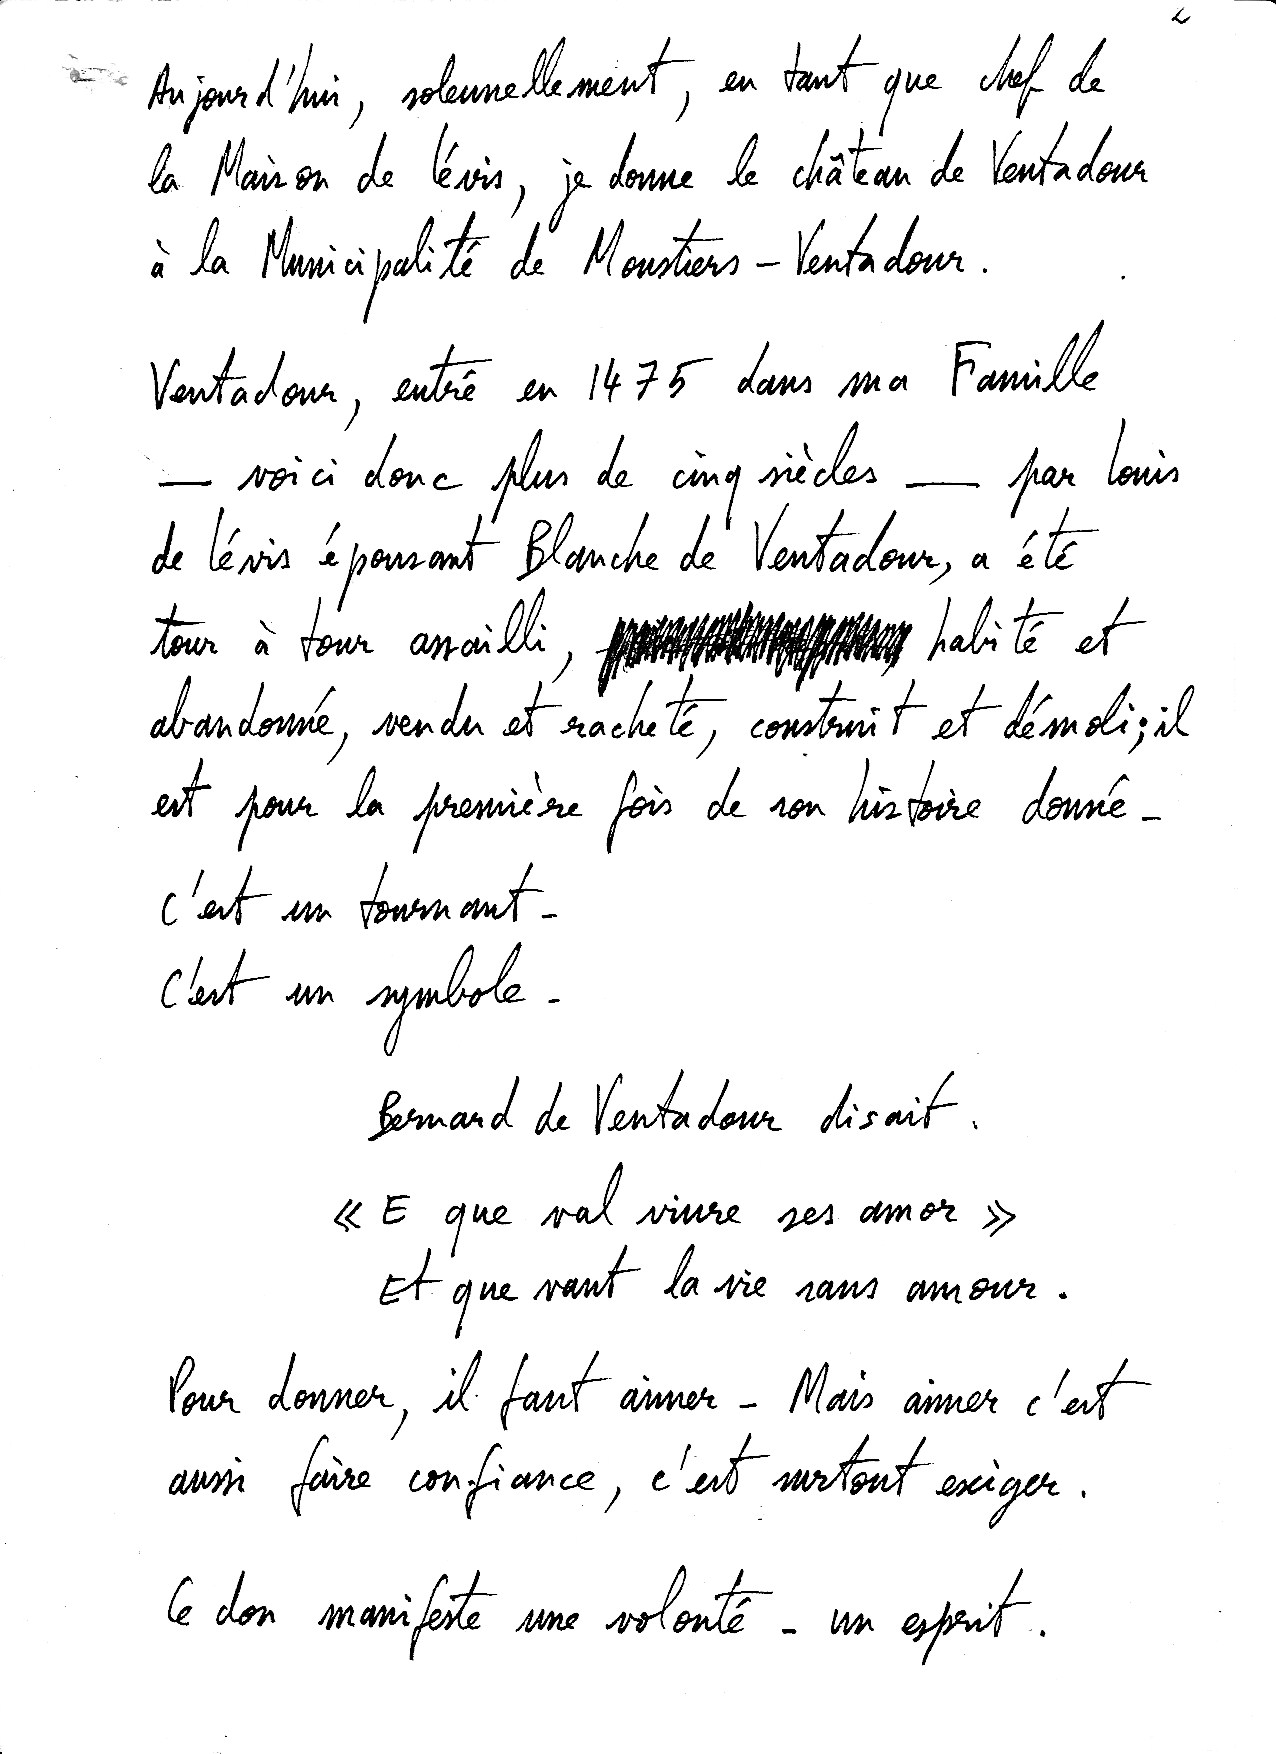 2
Aujourd'hui, solennellement, en tant que chef de
la Maison de Lévis, je donne le château de Ventadour
à la Municipalité de Moustiers - Ventadour.
Ventadour, entré en 1475 dans ma Famille
— voici donc plus de cinq siècles — par Louis
de Lévis épousant Blanche de Ventadour, a été
tour à tour assailli, habité et
abandonné, vendu et racheté, construit et démoli; il
est pour la première fois de son histoire donné -
C'est un tournant -
C'est un symbole -
Bernard de Ventadour disait.
« E que val viure ses amor »
Et que vaut la vie sans amour.
Pour donner, il faut aimer - Mais aimer c'est
aussi faire confiance, c'est surtout exiger.
Ce don manifeste une volonté - un esprit.